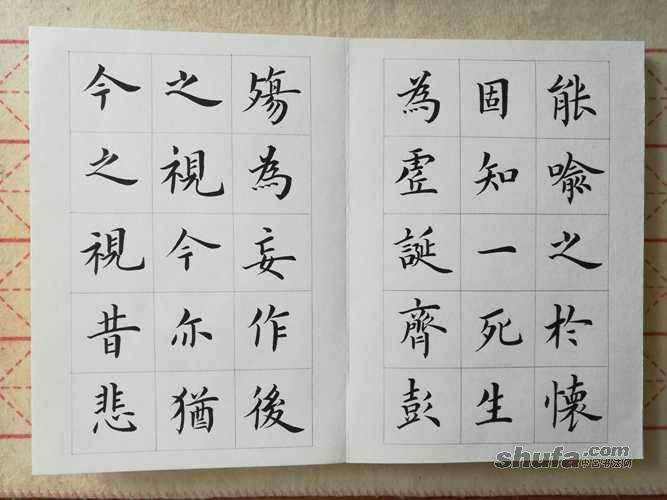 能喻之於懷
固知一死生
為虛誕齊彭
殤為妄作後
之視今亦猶
今之視昔悲
shufa.com
中国书法网